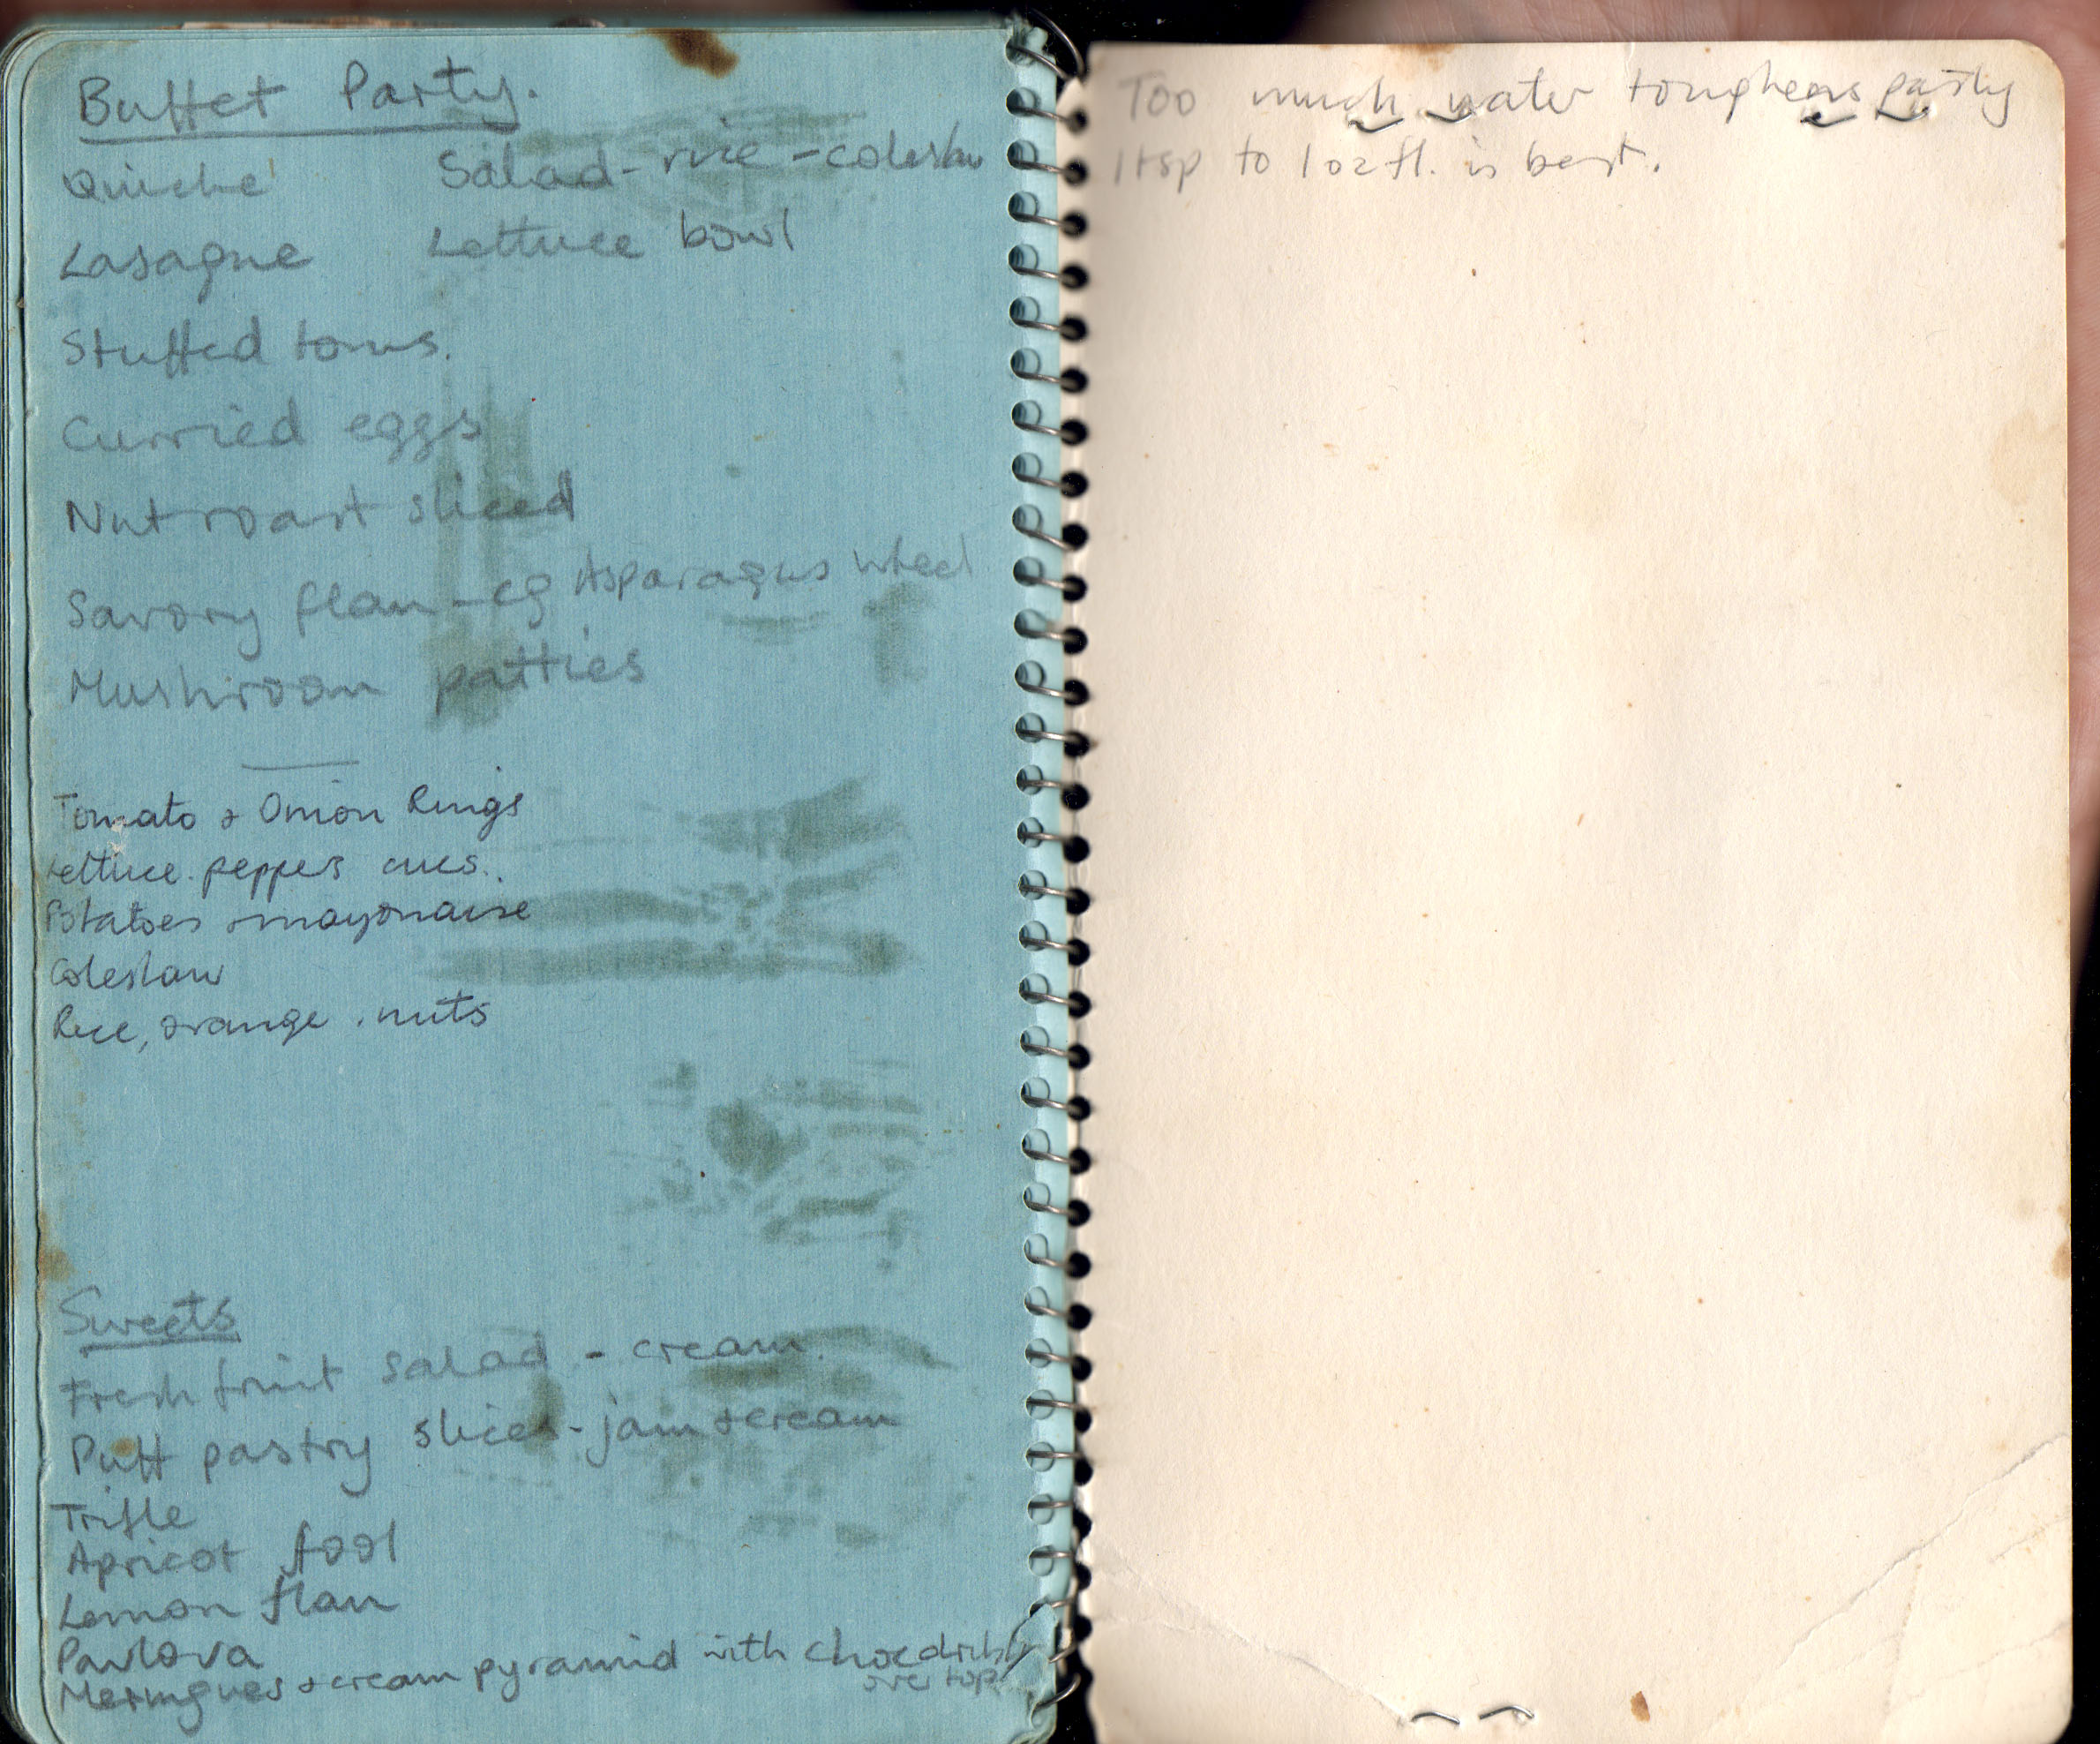 Buffet Party.
Quiche Salad - rice - coleslaw
Lasagne Lettuce bowl
Stuffed toms.
Curried eggs
Nut roast sliced
Savory flan - eg Asparagus Wheel
Mushroom patties
Tomato & Onion Rings
Lettuce. pepper cucs..
Potatoes & mayonaise
Coleslaw
Rice, orange. nuts
Sweets
Fresh fruit salad - cream.
Puff pastry slices - jam & cream
Trifle
Apricot fool
Lemon flan
Pavlova
Meringues & cream pyramid with choc
over top
Too much water toughens pastry
1 tsp to 1 oz fl. is best.